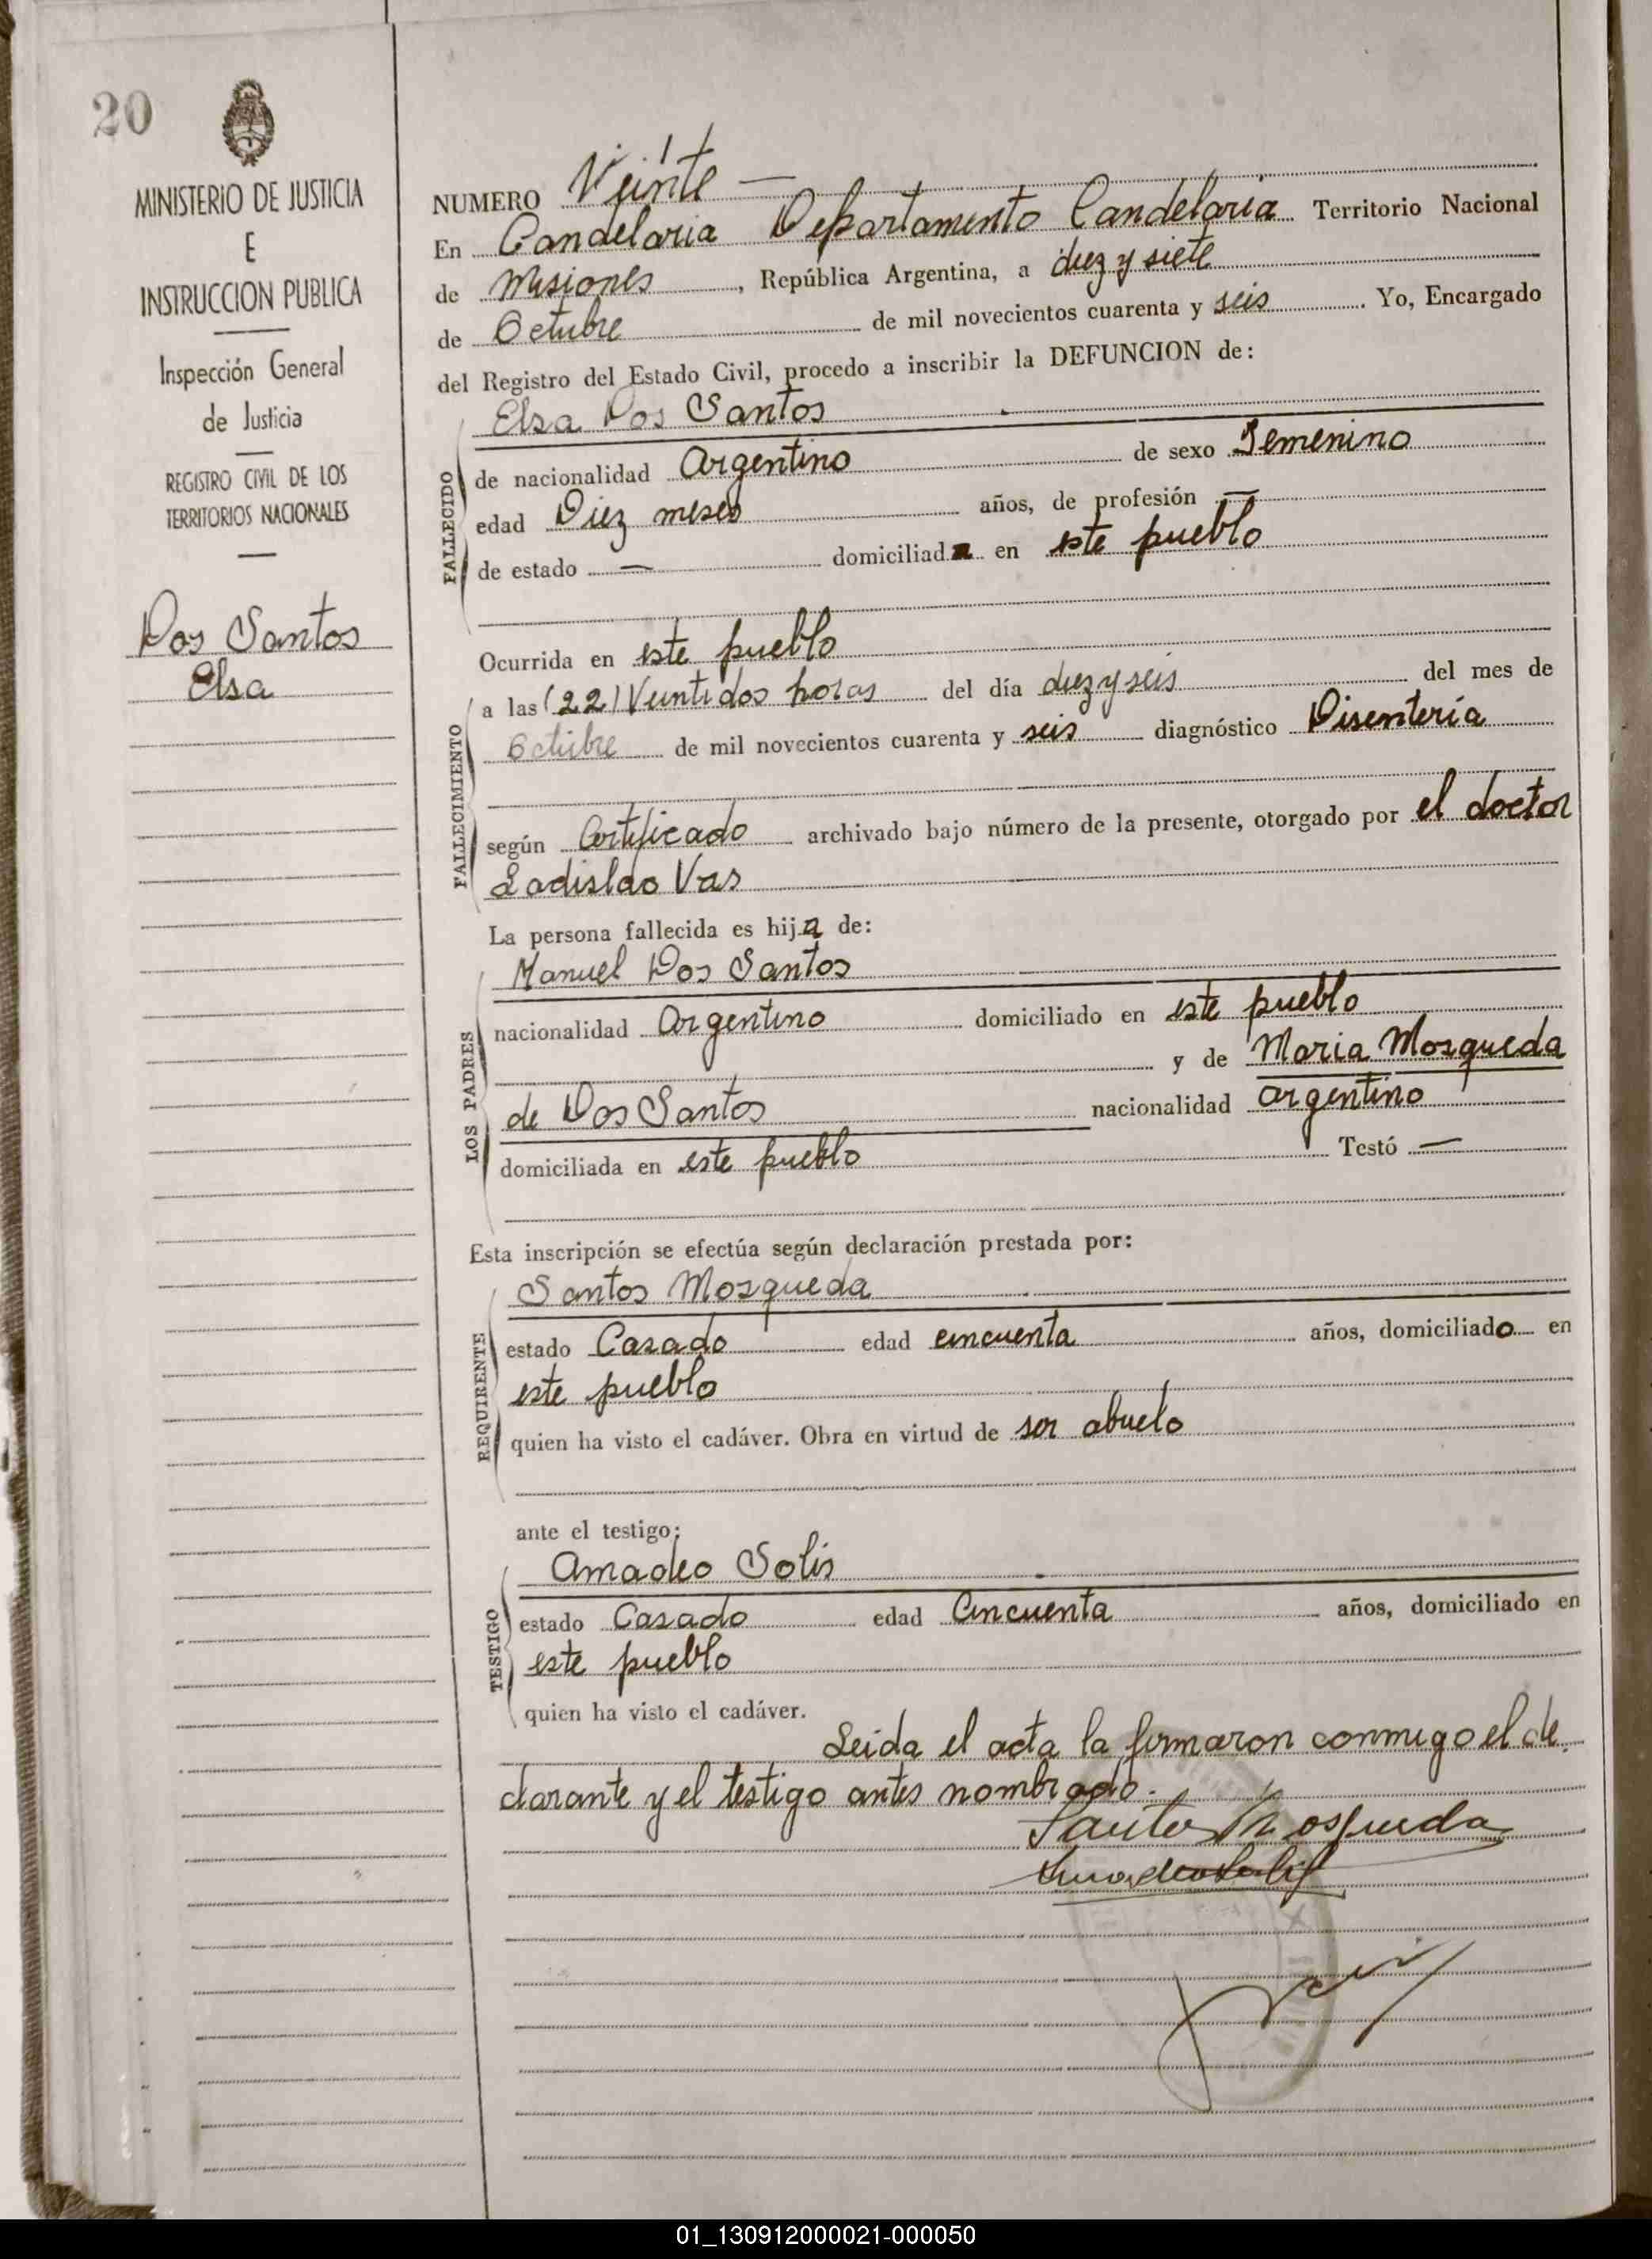 20
MINISTERIO DE JUSTICIA
E
INSTRUCCION PUBLICA
Inspección General
de Justicia
REGISTRO CIVIL DE LOS
TERRITORIOS NACIONALES
Dos Santos
Elsa
NUMERO Veinte —
En Candelaria Departamento Candelaria Territorio Nacional
de Misiones, República Argentina, a diez y siete
de Octubre de mil novecientos cuarenta y seis. Yo, Encargado
del Registro del Estado Civil, procedo a inscribir la DEFUNCION de:
FALLECIDO
Elsa Dos Santos
de nacionalidad Argentino de sexo Femenino
edad Diez meses años, de profesión —
de estado — domiciliada en este pueblo
Ocurrida en este pueblo
FALLECIMIENTO
a las (22) Veintidos horas del día diez y seis del mes de
Octubre de mil novecientos cuarenta y seis diagnóstico Disentería
según Certificado archivado bajo número de la presente, otorgado por el doctor
Ladislao Vas
La persona fallecida es hija de:
LOS PADRES
Manuel Dos Santos
nacionalidad Argentino domiciliado en este pueblo
y de Maria Mosqueda
de Dos Santos nacionalidad Argentino
domiciliada en este pueblo Testó —
Esta inscripción se efectúa según declaración prestada por:
REQUIRENTE
Santos Mosqueda
estado Casado edad cincuenta años, domiciliado en
este pueblo
quien ha visto el cadáver. Obra en virtud de ser abuelo
ante el testigo:
TESTIGO
Amadeo Solis
estado Casado edad Cincuenta años, domiciliado en
este pueblo
quien ha visto el cadáver.
Leida el acta la firmaron conmigo el de
clarante y el testigo antes nombrado.
Santos Mosqueda
Amadeo Solis
01_130912000021-000050